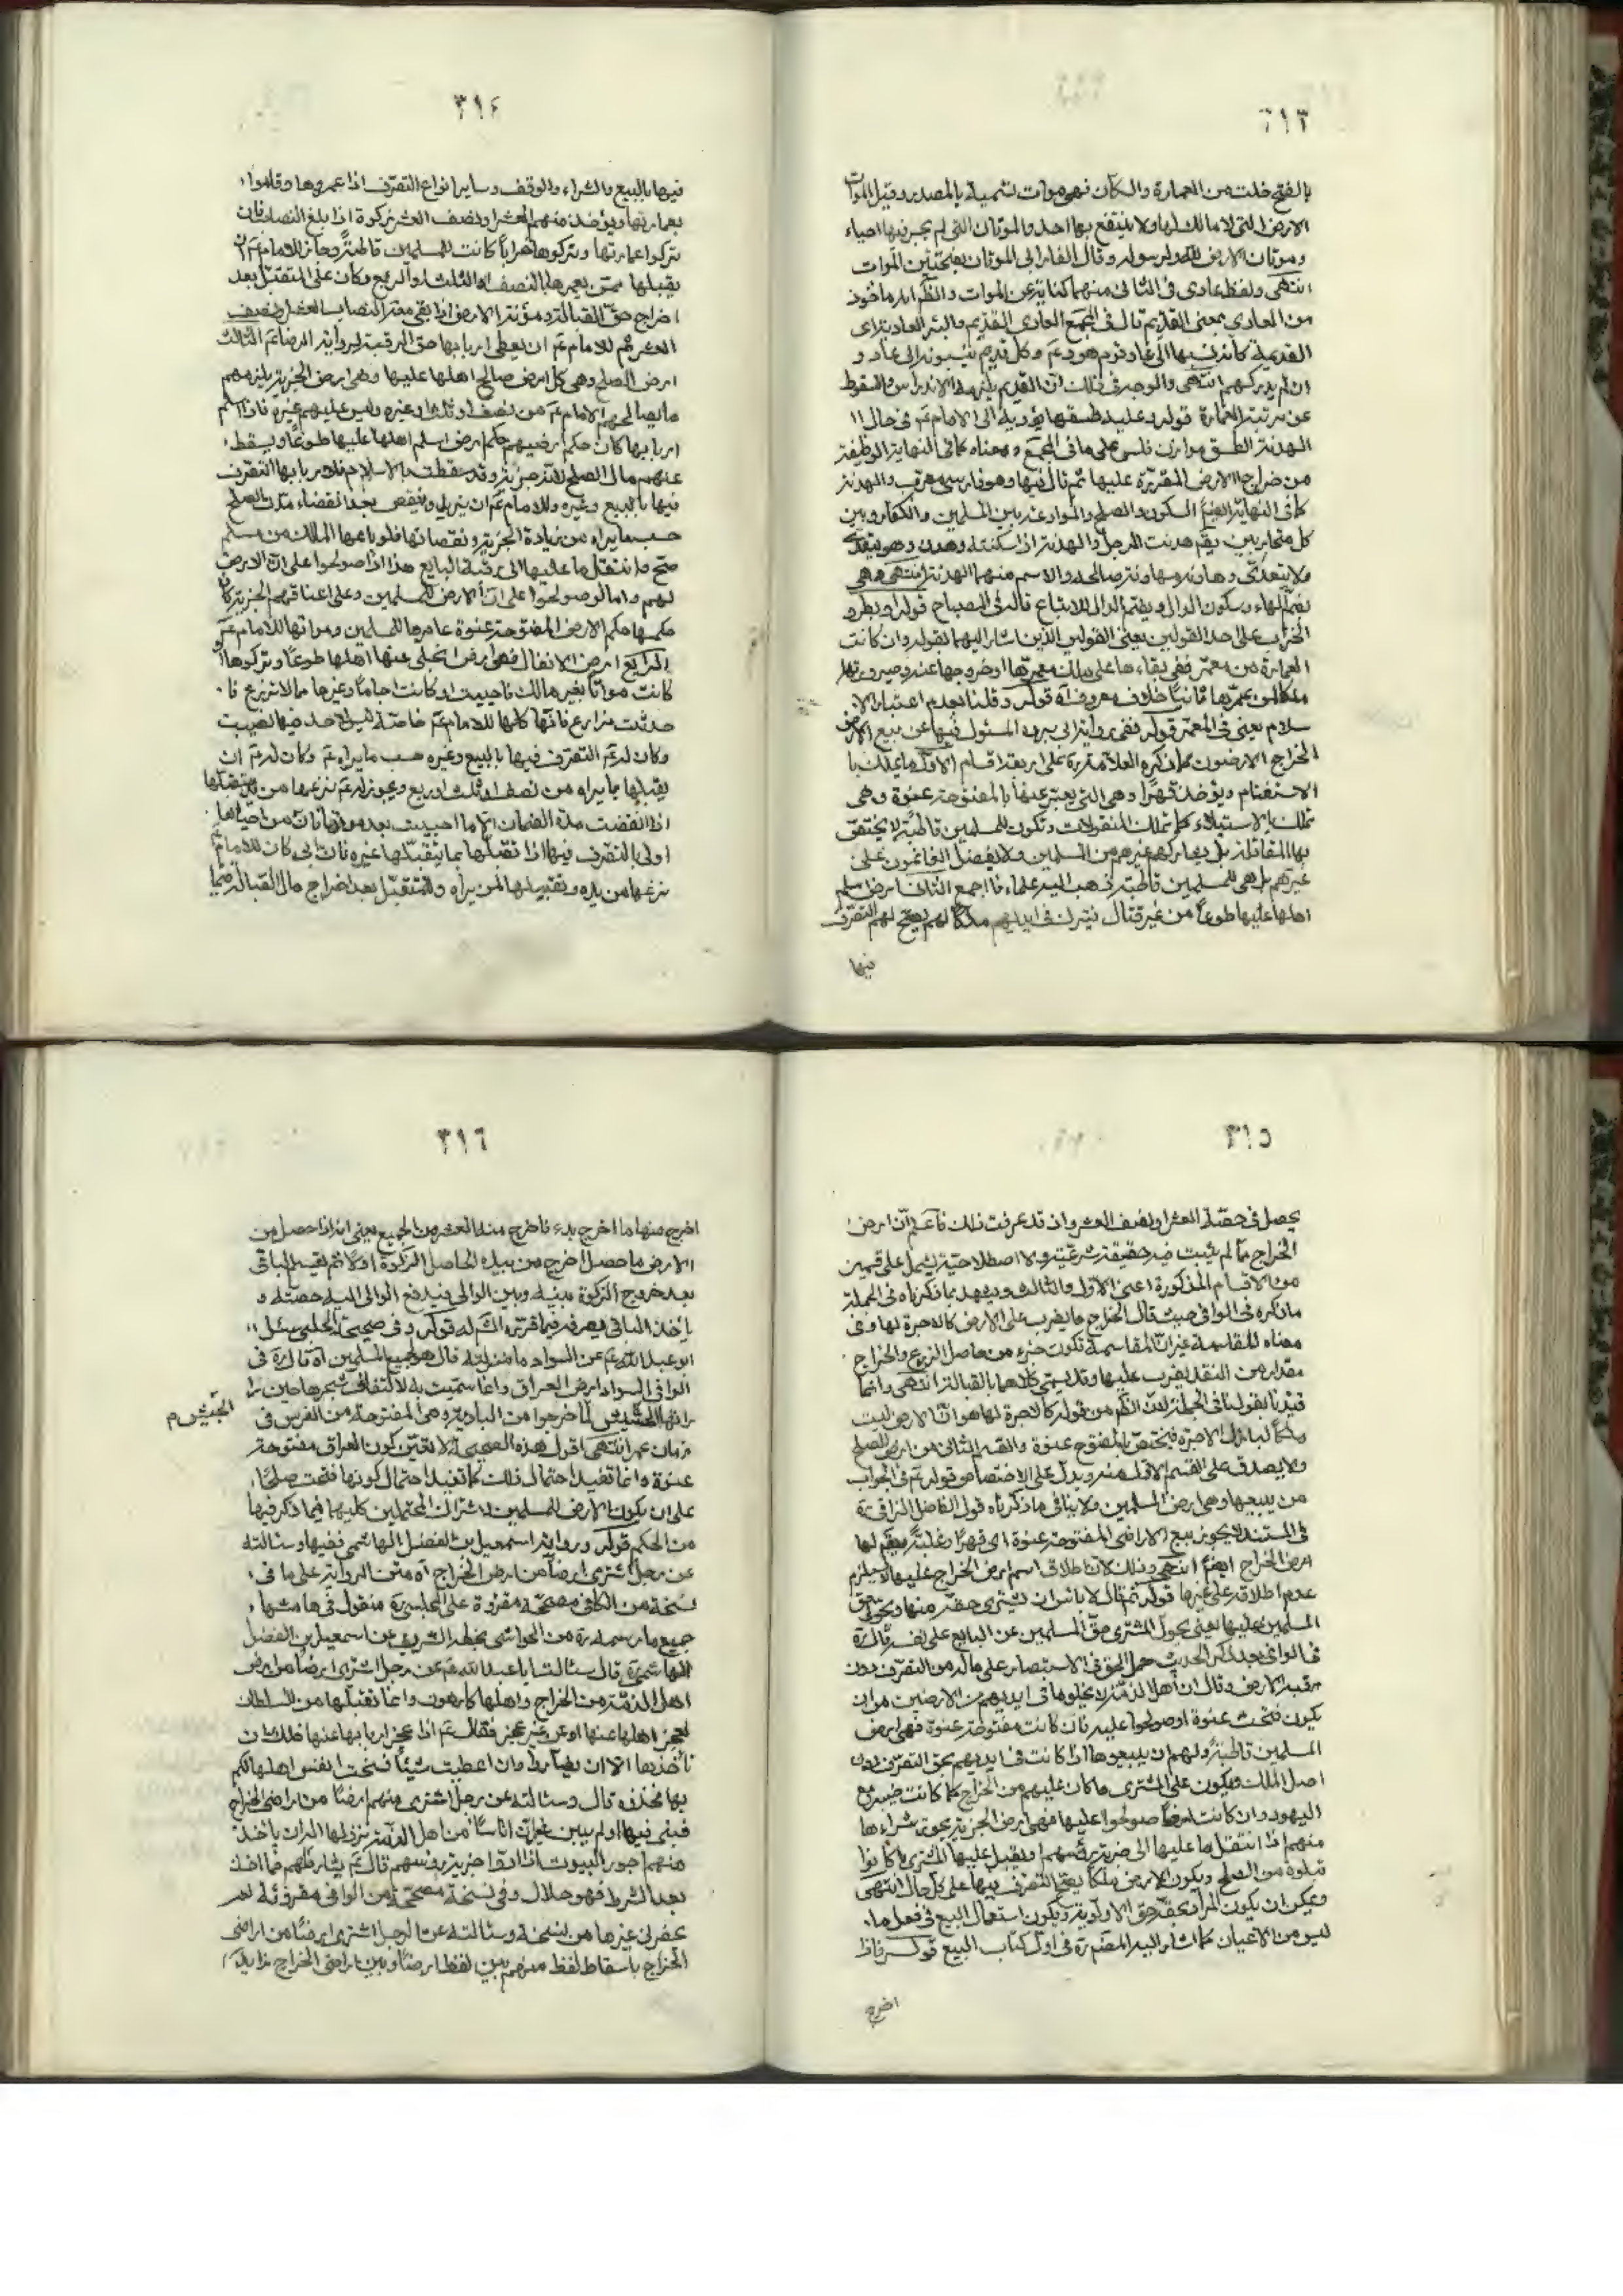 ٣١٣
بالفتح خلت من العمارة والسكان فهى موات تسمية بالمصدر وقيل الموات
الارض التى لا مالك لها ولا ينتفع بها احد والموتان التى لم يجر فيها احياء
وموتان الارض لله ولرسوله وقال الفارابى الموتان بفتحتين الموات
انتهى ولفظ عادى فى الثانى منهما كناية عن الموات والظاهر انه ماخوذ
من العادى بمعنى القديم قال فى المجمع العادى القديم والبئر العادية اى
القديمة كانه نسبها الى عاد قوم هود ع وكل قديم ينسبونه الى عاد و
ان لم يدركهم انتهى والوجه فى ذلك ان القديم يلزمه الاندراس والسقوط
عن مرتبة العمارة قوله وعليه طسقها يؤديه الى الامام ع فى حال ا
لهدنة الطسق موازن فلس على ما فى المجمع ومعناه كما فى النهاية الوظيفة
من خراج الارض المقررة عليها ثم قال فيها وهو فارسى معرب والهدنة
كما فى النهاية ايضا السكون والصلح والموادعة بين المسلمين والكفار وبين
كل متحاربين يقم هدنت الرجل والهدنة اذا سكنته وهدن وهو يتعدى
ولا يتعدى وهادنه مهادنة صالحه والاسم منهما الهدنة انتهى وهى
بضم الهاء وسكون الدال وبضم الدال للاتباع قاله فى المصباح قوله او يطرو
الخراب على احد القولين يعنى القولين الذين اشار اليهما بقوله وان كانت
العمارة من معمر ففى بقاءها على ملك معمرها او خروجها عنه وصيرورتها
ملكا لمن عمرها ثانيا خلاف معروف اه قوله وقلنا بعدم اعتبار الا
سلام يعنى فى المعمر قوله ففى رواية ابى بردة المسئول فيها عن بيع الارض
الخراج الارضون كما ذكره العلامة ره على اربعة اقسام الاول ما يملك با
لاستغنام ويؤخذ قهرا وهى التى يعبر عنها بالمفتوحة عنوة وهى
تملك بالاستيلاء كما تملك المنقولات وتكون للمسلمين قاطبة لا يختص
بها المقاتلة بل يشاركهم غيرهم من المسلمين ولا يفضل الغانمون على
غيرهم بل هى للمسلمين قاطبة ذهب اليه علماءنا اجمع الثانى ارض اسلم
اهلها عليها طوعا من غير قتال فتترك فى ايديهم ملكا لهم يصح لهم التصرف
فيها
٣١٤
فيها بالبيع والشراء والوقف وساير انواع التصرف اذا عمروها وقاموا
بعمارتها ويؤخذ منهم العشر او نصف العشر زكوة اذا بلغ النصاب فان
تركوا عمارتها وتركوها خرابا كانت للمسلمين قاطبة وجاز للامام ع ان
يقبلها ممن يعمرها بالنصف او الثلث او الربع وكان على المتقبل بعد
اخراج حق القبالة ومؤنة الارض اذا بقى معه النصاب العشر او نصف
العشر ثم للامام ع ان يعطى اربابها حق الرقبة لرواية الرضا ع الثالث
ارض الصلح وهى كل ارض صالح اهلها عليها وهى ارض الجزية يلزمهم
ما يصالحهم الامام ع من نصف او ثلث او غيره وليس عليهم غيره فاذا اسلم
اربابها كان حكم ارضيهم حكم ارض اسلم اهلها عليها طوعا ويسقط
عنهم مال الصلح لانه جزية وقد سقطت بالاسلام فلاربابها التصرف
فيها بالبيع وغيره وللامام ع ان يزيد وينقص بعد انقضاء مدت الصلح
حسب ما يراه من زيادة الجزية ونقصانها فلو باعها المالك من مسلم
صح وانتقل ما عليها الى رقبة البايع هذا اذا صولحوا على ان الارض
لهم واما لو صولحوا على ان الارض للمسلمين وعلى اعناقهم الجزية كان
حكمها حكم الارض المفتوحة عنوة عامرها للمسلمين ومواتها للامام ع
الرابع ارض الانفال فهى ارض انجلى عنها اهلها طوعا وتركوها او
كانت مواتا بغير مالك فاحييت او كانت اجاما وغيرها مما لا تزرع فا
حدثت مزارع فانها كلها للامام ع خاصة ليس لاحد فيها نصيب
وكان له ع التصرف فيها بالبيع وغيره حسب ما يراه ع وكان له ع ان
يقبلها بما يراه من نصف او ثلث او ربع ويجوز له ع نزعها من متقبلها
اذا انقضت مدة الضمان الا ما احييت بعد موتها فان من احياها
اولى بالتصرف فيها اذا تقبلها بما يتقبلها غيره فان ابى كان للامام ع
نزعها من يده وتقبيلها لمن يراه وللمتقبل بعد اخراج مال القبالة فيما
٣١٥
يحصل فى حصته العشر او نصف العشر وان قد عرفت ذلك فاعلم ان ارض
الخراج مما لم يثبت فيه حقيقة شرعية ولا اصطلاحية يشمل على قسمين
من الاقسام المذكورة اعنى الاول والثالث ويشهد بما ذكرناه فى الجملة
ما ذكره فى الوافى حيث قال الخراج ما يضرب على الارض كالاجرة لها وفى
معناه المقاسمة غير ان المقاسمة تكون جزء من حاصل الزرع والخراج
مقدار من النقد يضرب عليها وقد يسمى كلاهما بالقبالة انتهى وانما
قيدنا بقولنا فى الجملة لان الظم من قوله كالاجرة لها هو ان الارض ليست
ملكا لباذل الاجرة فيختص بالمفتوح عنوة والقسم الثانى من ارض الصلح
ولا يصدق على القسم الاول منه ويدل على الاختصاص قوله ع فى الجواب
من يبيعها وهى ارض المسلمين ولا ينافى ما ذكرناه قول الفاضل النراقى ره
فى المستند لا يجوز بيع الاراضى المفتوحة عنوة اى قهرا وغلبة ويقم لها
ارض الخراج ايضا انتهى وذلك لان اطلاق اسم ارض الخراج عليها لا يلزم
عدم اطلاقه على غيرها قوله ثم قال لا باس ان يشترى حقه منها ويحول حق
المسلمين عليها يعنى يحول المشترى حق المسلمين عن البايع على نفسه قال ره
فى الوافى بعد ذكر الحديث حمل الحق فى الاستبصار على ماله من التصرف دون
رقبة الارض وقال ان اهل الذمة لا يخلو ما فى ايديهم من الارضين من ان
يكون فتحت عنوة او صولحوا عليه فان كانت مفتوحة عنوة فهى ارض
المسلمين قاطبة ولهم ان يبيعوها اذا كانت فى ايديهم بحق التصرف دون
اصل الملك ويكون على المشترى ما كان عليهم من الخراج كما كانت خيبر مع
اليهود وان كانت ارضا صولحوا عليها فهى ارض الجزية يجوز شراءها
منهم اذا انتقل ما عليها الى جزية رؤسهم ويقبل عليها المشترى ما كانوا
قبلوه من الصلح ويكون الارض ملكا يصح التصرف فيها على كل حال انتهى
ويمكن ان يكون المراد بحقه حق الاولوية ويكون استعمال البيع فى فعل ما
ليس من الاعيان كما اشار اليه المصنف ره فى اول كتاب البيع قوله فاذا
اخرج
٣١٦
اخرج منها ما اخرج بدء فاخرج منه العشر من الجميع يعنى انه اذا حصل من
الارض ما حصل اخرج من بيده الحاصل الزكوة اولا ثم يقسم الباقى
بعد خروج الزكوة بينه وبين الوالى فيدفع الوالى اليه حصته و
ياخذ الباقى يصرفه فيما قرره الله له قوله وفى صحيحة الحلبى سئل
ابو عبد الله ع عن السواد ما منزلته قال هو لجميع المسلمين اه قال ره فى
الوافى السواد ارض العراق وانما سميت به لالتفاف شجرها حين را
راتها الجيش لما خرجوا من البادية وهى المفتوحة من الفرس فى
الجيش م
زمان عمر انتهى اقول هذه الصحيحة لا تعين كون العراق مفتوحة
عنوة وانما تفيد احتمال ذلك كما تفيد احتمال كونها فتحت صلحا
على ان يكون الارض للمسلمين لاشتراك المحتملين كليهما فيما ذكر فيها
من الحكم قوله ورواية اسمعيل بن الفضل الهاشمى ففيها وسئالته
عن رجل اشترى ارضا من ارض الخراج اه متن الرواية على ما فى
نسخة من الكافى مصححة مقروة على المجلسى ره منقول فى هامشها
جميع ما رسمه ره من الحواشى بخطه الشريف عن اسمعيل بن الفضل
الهاشمى ره قال سئالت ابا عبد الله ع عن رجل اشترى ارضا من ارض
اهل الذمة من الخراج واهلها كارهون وانما تقبلها من السلطان
لعجز اهلها عنها او عن غير عجز فقال ع اذا عجز اربابها عنها فلك ان
تاخذها الا ان يضاروا وان اعطيت شيئا فسخت انفس اهلها لكم
بها فخذه قال وسئالته عن رجل اشترى منهم ارضا من اراضى الخراج
فبنى فيها او لم يبن غير ان اناسا من اهل الذمة نزلوها اله ان ياخذ
منهم اجور البيوت اذا ادوا جزية رؤسهم قال ع يشارطهم فما اخذ
بعد الشرط فهو حلال وفى نسخة مصححة من الوافى مقروئة لم
يحضرنى غيرها من نسخه وسئالته عن الرجل اشترى ارضا من اراضى
الخراج باسقاط لفظ منهم بين لفظ ارضا وبين اراضى الخراج